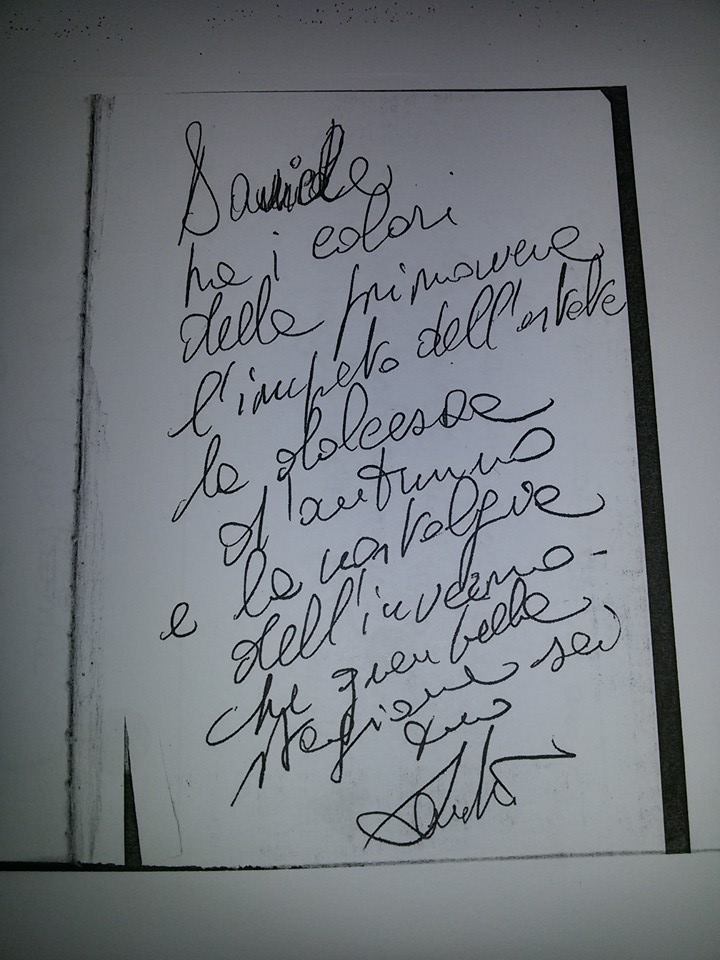 Daniela
ha i colori
della primavera
l'impeto dell'estate
la dolcezza
d'autunno
e la nostalgia
dell'inverno -
che gran bella
stagione sei